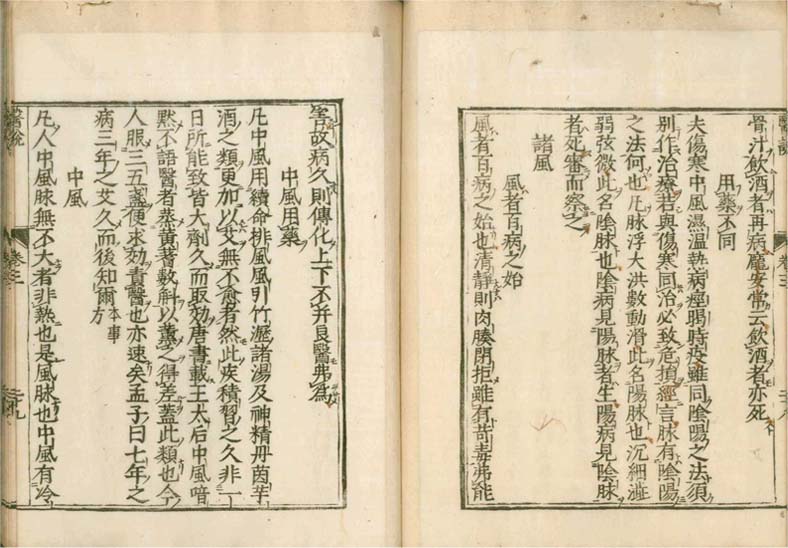 醫說 卷三
骨汁飲酒者再病龐安常云飲酒者亦死
用藥不同
夫傷寒中風濕溫熱病痙暍時疫雖同陰陽之法須
别作治療若與傷寒同治必致危損經言脉有陰陽
之法何也凡脉浮大洪數動滑此名陽脉也沉細澁
弱弦微此名陰脉也陰病見陽脉者生陽病見陰脉
者死審而察之
諸風
風者百病之始
風者百病之始也清靜則肉腠閉拒雖有苛毒弗能
害故病久則傳化上下不并良醫弗爲
中風用藥
凡中風用續命排風風引竹瀝諸湯及神精丹茵芋
酒之類更加以艾無不愈者然此疾積習之久非一
日所能致皆大劑久而取効唐書載王太后中風喑
黙不語醫者蒸黄蓍數斛以薰之得差蓋此類也今
人服三五盞便求効責醫也亦速矣孟子曰七年之
病三年之艾久而後知爾本事方
中風
凡人中風脉無不大者非熱也是風脉也中風有冷
醫說 卷三